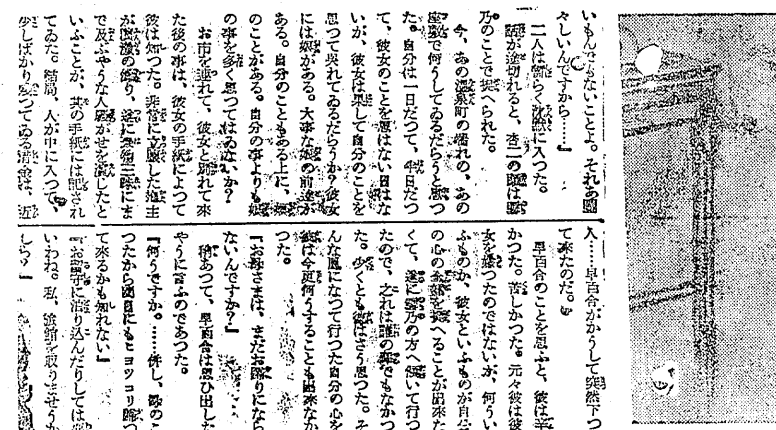 いもんでもないことよ。それあ圖
々しいんですから……』
二人は暫らく沈默に入つた。
話が途切れると、杏二の頭は
乃のことで捉へられた。
今、あの溫泉町の外れの、あの
座敷で何うしてゐるだらうと思つ
た。自分は一日だつて、半日だつ
て、彼女のことを思はない日はな
いが、彼女は果して自分のことを
思つて呉れてゐるだらうか？彼女
には娘がある。大事な娘の前途が
ある。自分のこともある上に、
のことがある。自分の事よりも
の事を多く思つてはゐないか？
お市を連れて、彼女と別れて來
た後の事は、彼女の手紙によつて
彼は知つた。非常に立腹した
が の餘り、遂に 三 にま
で及ぶやうな人 がせを演じたと
いふことが、其の手紙には記され
てゐた。結局、人が中に入つて、
少しばかり つてゐる は、近
人……早百合がかうして突然下つ
て來たのだ。
早百合のことを思ふと、彼は辛
かつた。苦しかつた。元々彼は彼
女を嫌つたのではないが、何うい
ふものか、彼女といふものが自分
の心の全部を捉へることが出來た
くて、遂に 乃の方へ傾いて行つ
たので、之れは誰の罪でもなかつ
た。少くとも彼はさう思つた。そ
んな風になつて行つた自分の心を
彼は今更何うすることも出來なか
つた。
『お母さまは、まだお歸りになら
ないんですか？』
稍あつて、早百合は思ひ出した
やうに言ふのであつた。
『何うですか。……併し、 のこ
つたから面目にもヒヨツコリ歸つ
て來るかも知れない』
『お留守に泊り込んだりしては
いわね。私、旅館を取りませうか
しら？』